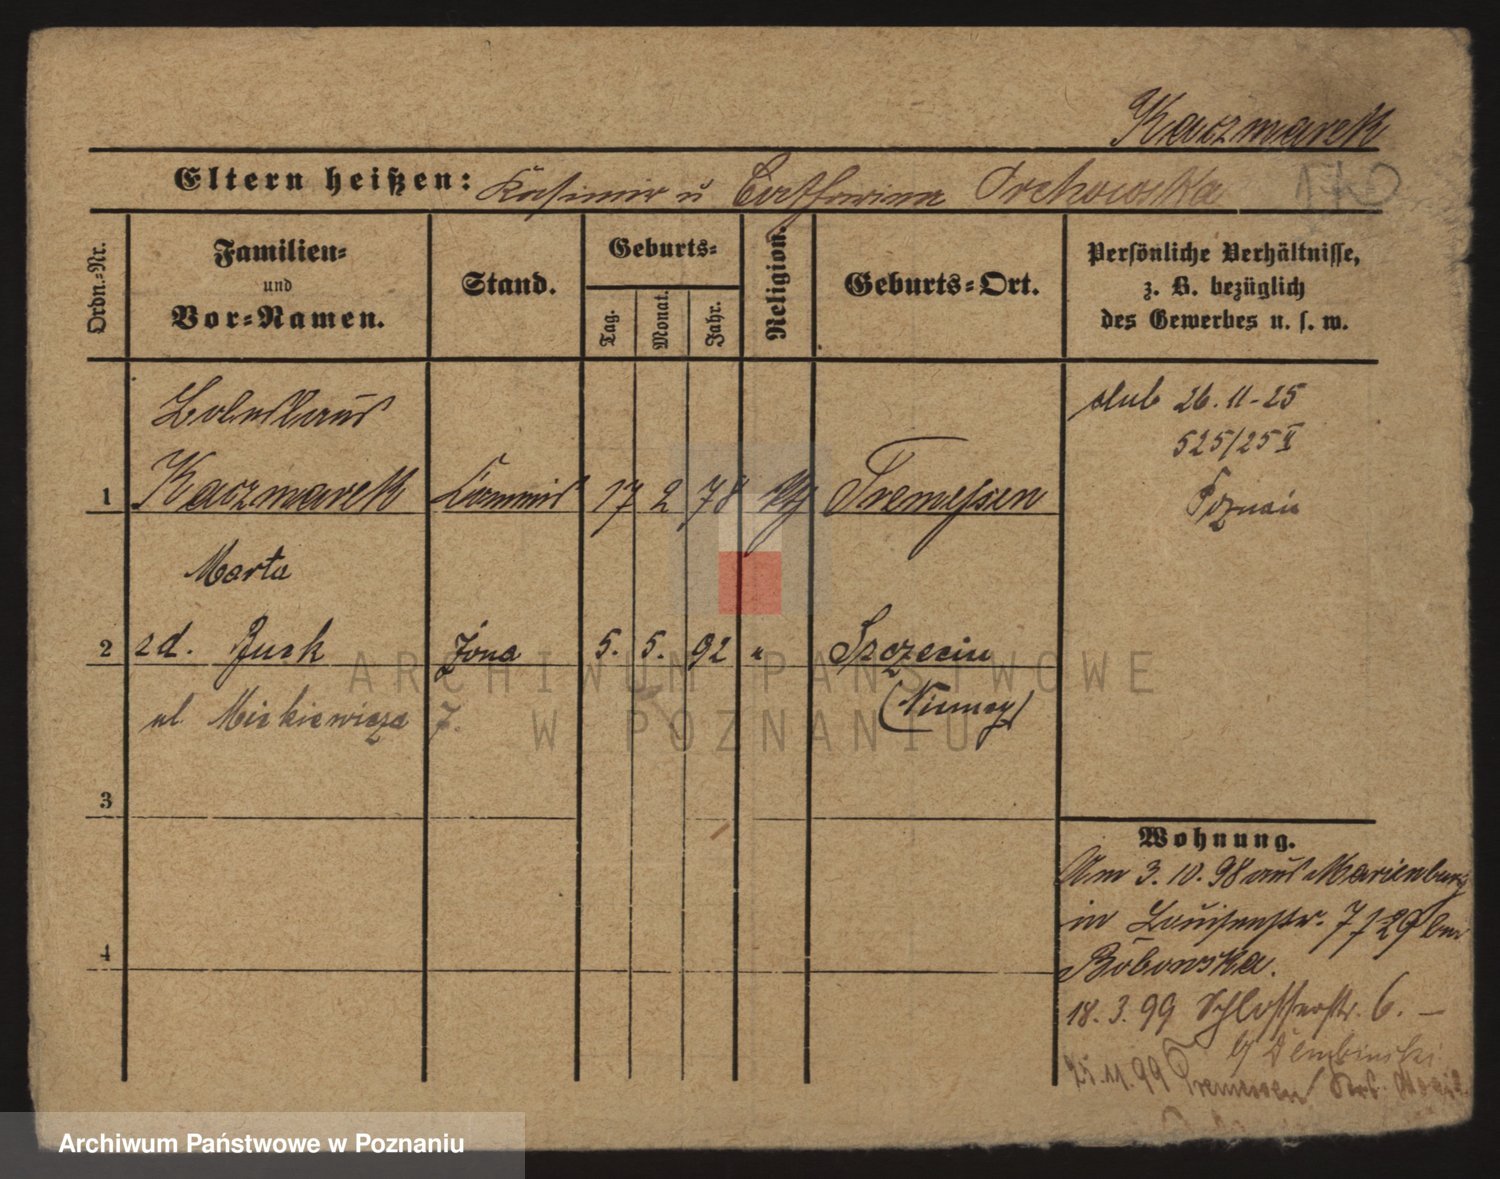 Kaczmarek
Eltern heißen: Kasimir u Catharina Orchowska
170
Ordn.-Nr.
Familien-
und
Vor-Namen.
Stand.
Geburts-
Tag.
Monat.
Jahr.
Religion.
Geburts-Ort.
Persönliche Verhältnisse,
z. B. bezüglich
des Gewerbes u. s. w.
Boleslaus
1 Kaczmarek Commis 17 2 78 Tremessen
ślub 26.11-25
525/25 II
Poznań
Marta
2 zd. Zuck żona 5. 5. 92 " Szczecin
(Niemcy)
ul Mickiewicza 7.
3
4
Wohnung.
Am 3.10.98 aus Marienburg
in Louisenstr. 7 f 29 bei
Bobowska.
18.3.99 Schlosserstr. 6. –
bj Dembinski
25.11.99 Tremessen
ARCHIWUM PAŃSTWOWE
W POZNANIU
Archiwum Państwowe w Poznaniu